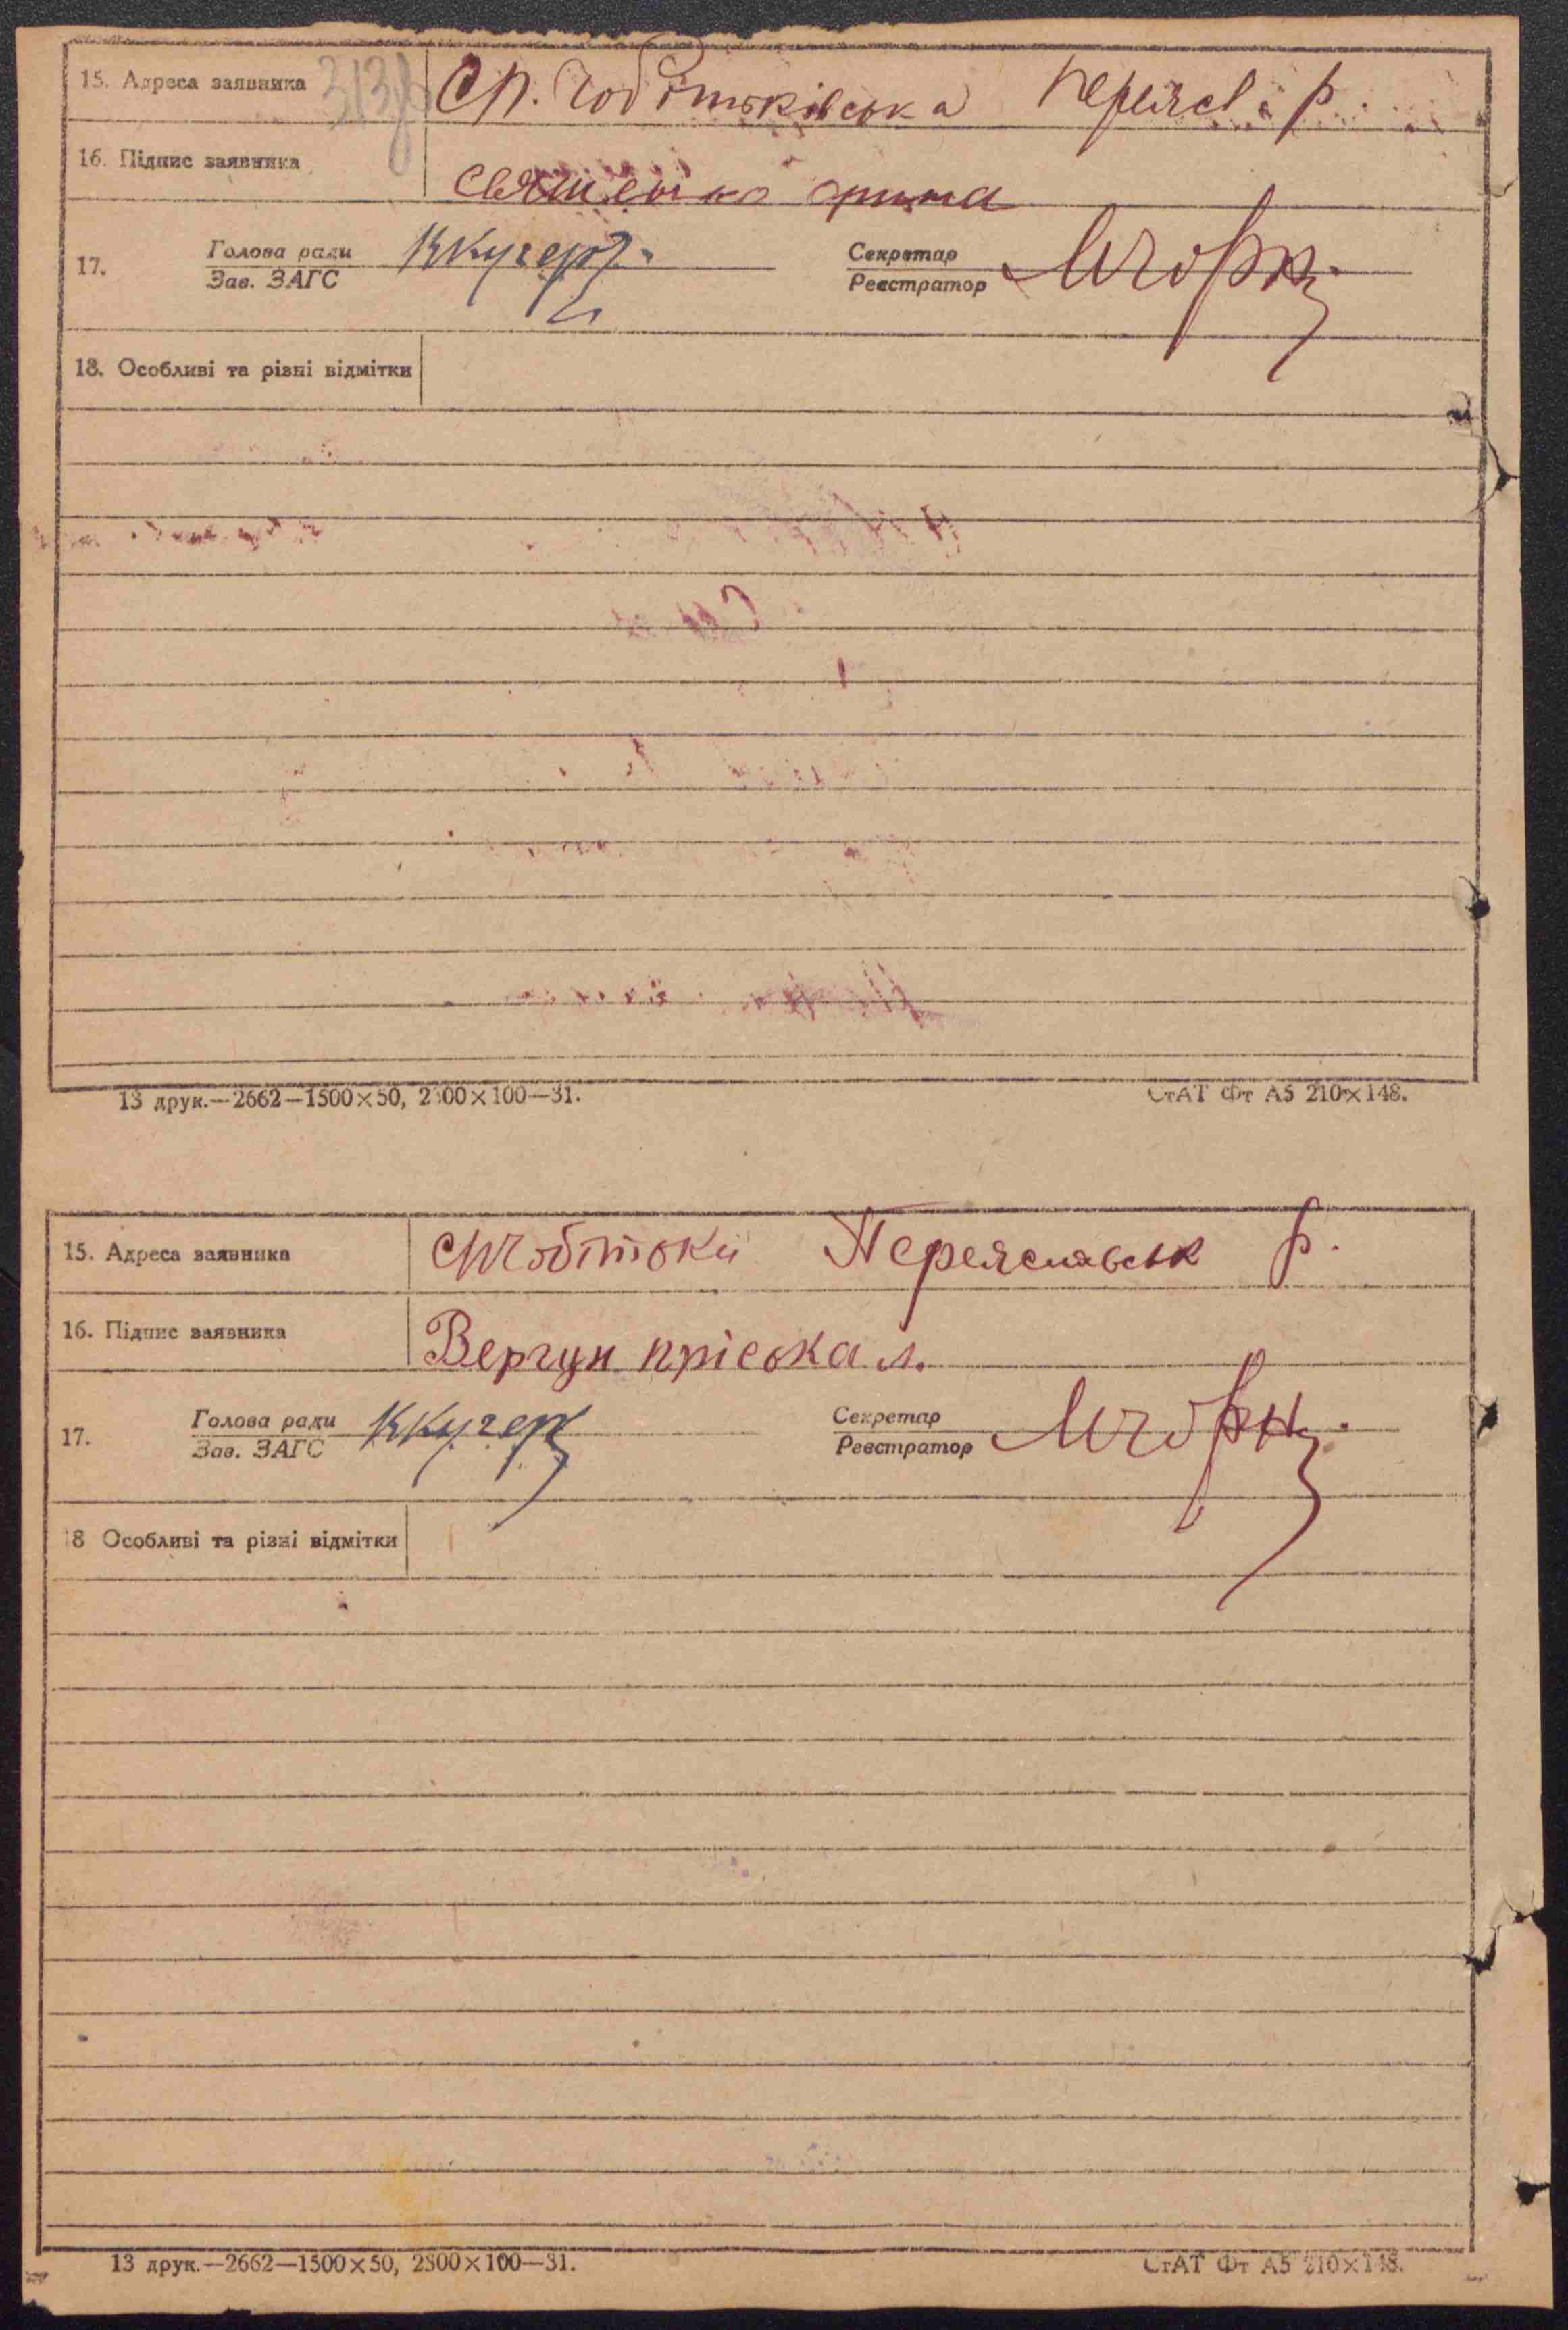 15. Адреса заявника СР. Чобітьківська Переясл. р.
16. Підпис заявника Святенко орина
17. Голова ради Ккучер Секретар
Зав. ЗАГС Реєстратор
18. Особливі та різні відмітки
13 друк.—2662—1500×50, 2300×100—31. СтАТ Фт А5 210×148.
15. Адреса заявника Переяславськ р.
16. Підпис заявника Вергун пріська л.
17. Голова ради Ккучер Секретар
Зав. ЗАГС Реєстратор
18 Особливі та різні відмітки
13 друк.—2662—1500×50, 2300×100—31. СтАТ Фт А5 210×148.